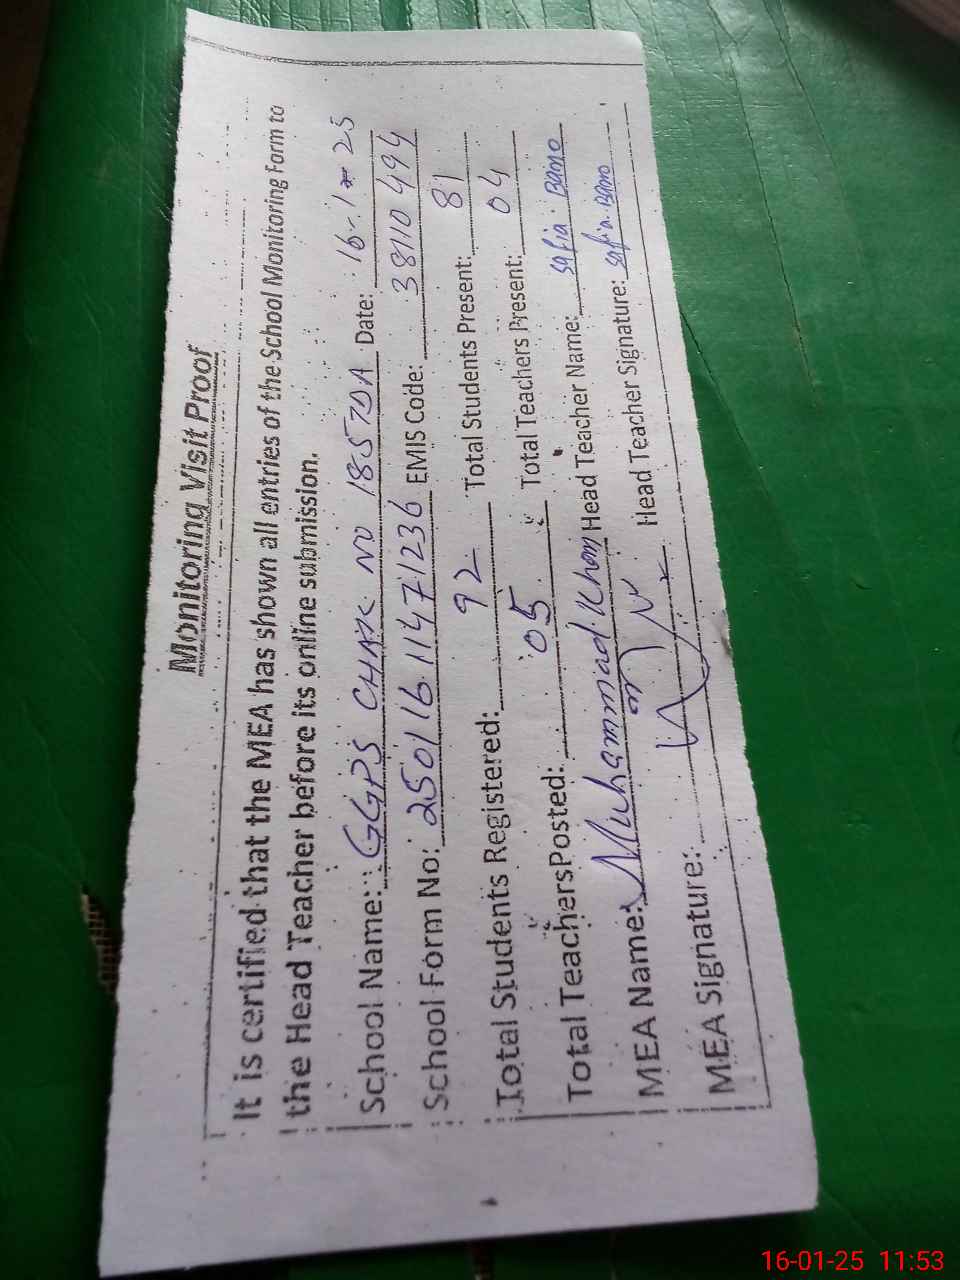 Monitoring Visit Proof
It is certified that the MEA has shown all entries of the School Monitoring Form to
the Head Teacher before its online submission.
School Name: GGPS CHAK NO 185 7DA Date: 16-1-25
School Form No: 250116 11471236 EMIS Code: 38110 494
Total Students Registered: 92 Total Students Present: 81
Total TeachersPosted: 05 Total Teachers Present: 04
MEA Name: Muhammad Khan Head Teacher Name: Safia Bano
MEA Signature: Head Teacher Signature: Safia Bano
16-01-25 11:53